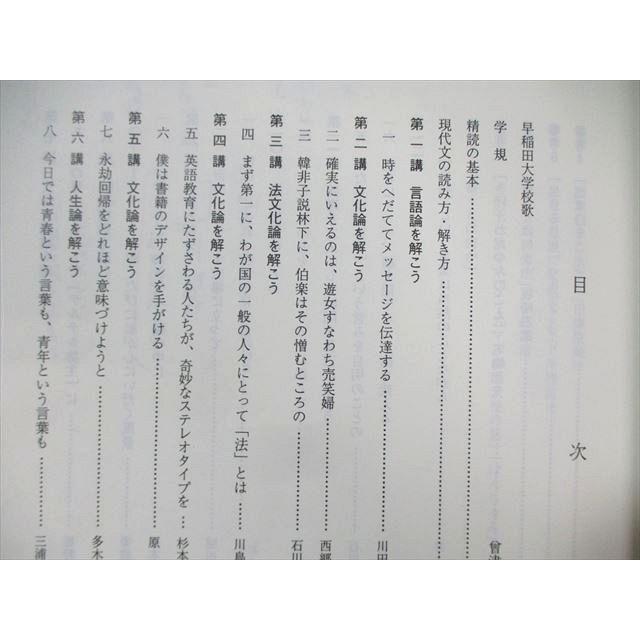 目次
早稲田大学校歌
学規
精読の基本
現代文の読み方・解き方 曾津
第一講 言語論を解こう
一 時をへだててメッセージを伝達する 川田
第二講 文化論を解こう
二 確実にいえるのは、遊女すなわち売笑婦 西郷
三 韓非子説林下に、伯楽はその憎むところの 石川
第三講 法文化論を解こう
四 まず第一に、わが国の一般の人々にとって「法」とは 川島
第四講 文化論を解こう
五 英語教育にたずさわる人たちが、奇妙なステレオタイプを 杉本
六 僕は書籍のデザインを手がける 原
第五講 文化論を解こう
七 永劫回帰をどれほど意味づけようと 多木
第六講 人生論を解こう
八 今日では青春という言葉も、青年という言葉も 三浦